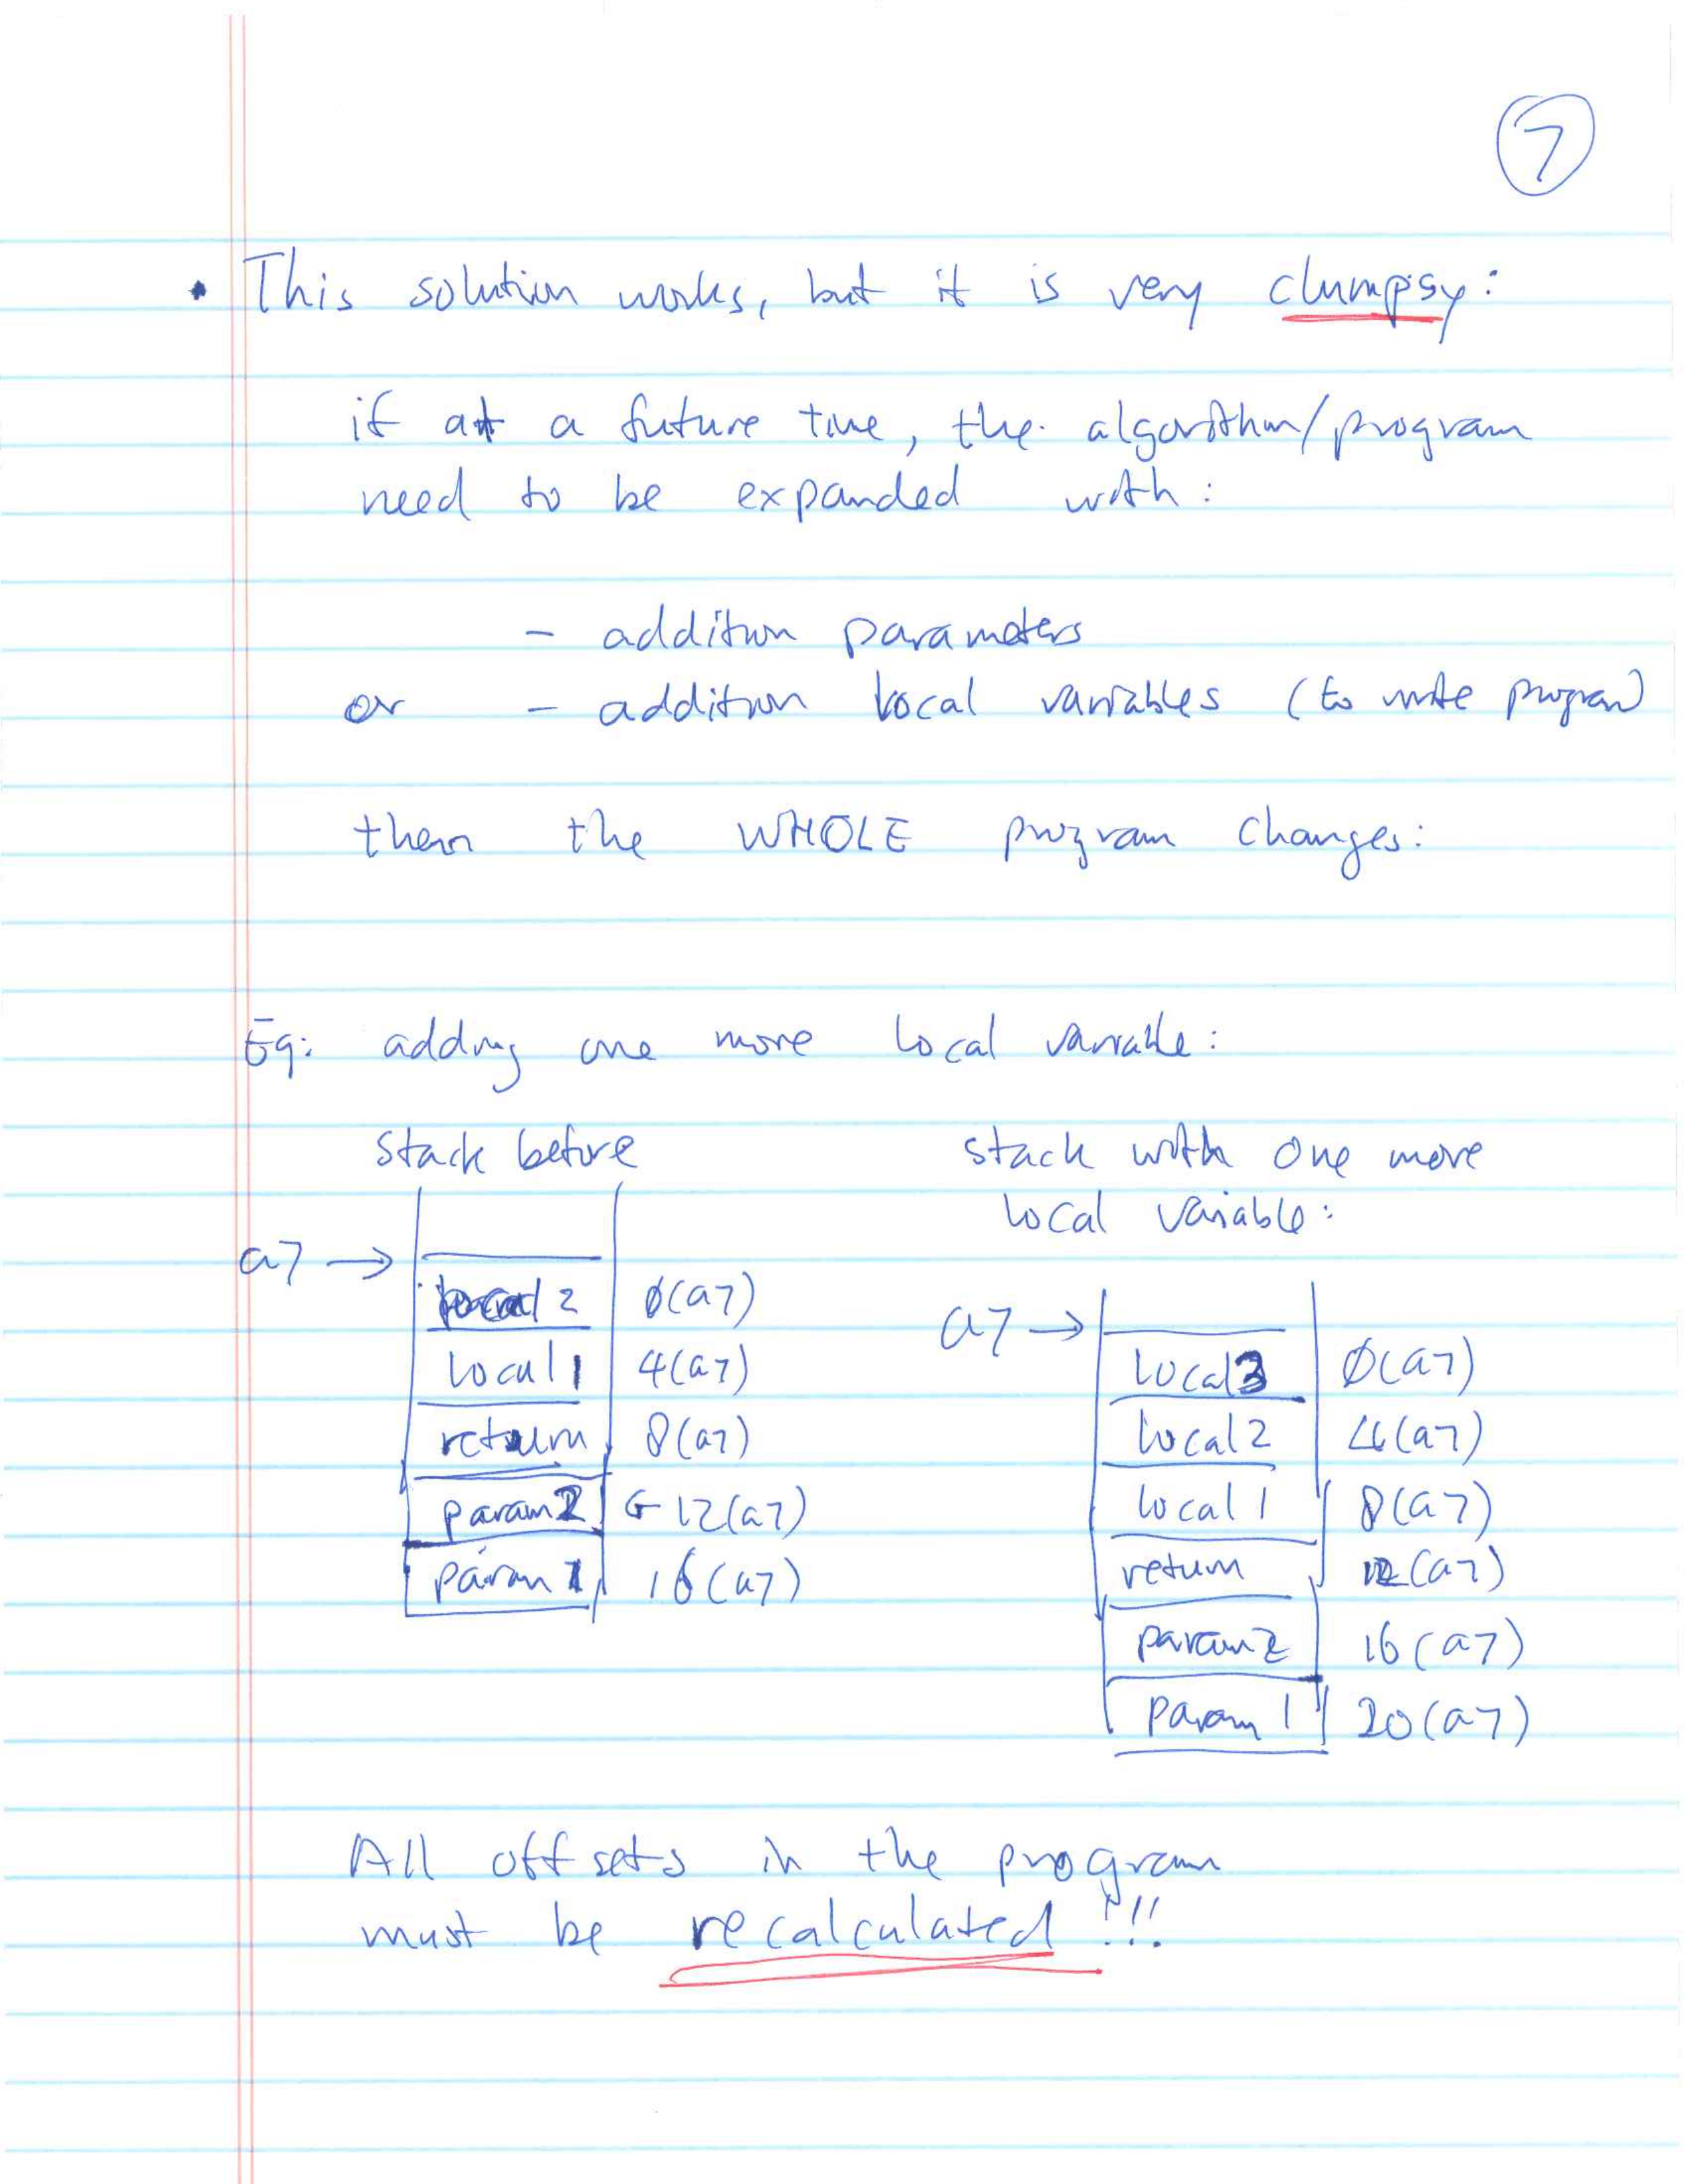 7
• This solution works, but it is very clumpsy:
if at a future time, the algorithm/program
need to be expanded with:
- addition parameters
or - addition local variables (to write program)
then the WHOLE program changes:
Eg: adding one more local variable:
stack before
a7 →
local 2 0(a7)
local 1 4(a7)
return 8(a7)
param 2 ← 12(a7)
param 1 16(a7)
stack with one more
local variable:
a7 →
local 3 0(a7)
local 2 4(a7)
local 1 8(a7)
return 12(a7)
param 2 16(a7)
param 1 20(a7)
All offsets in the program
must be recalculated !!!